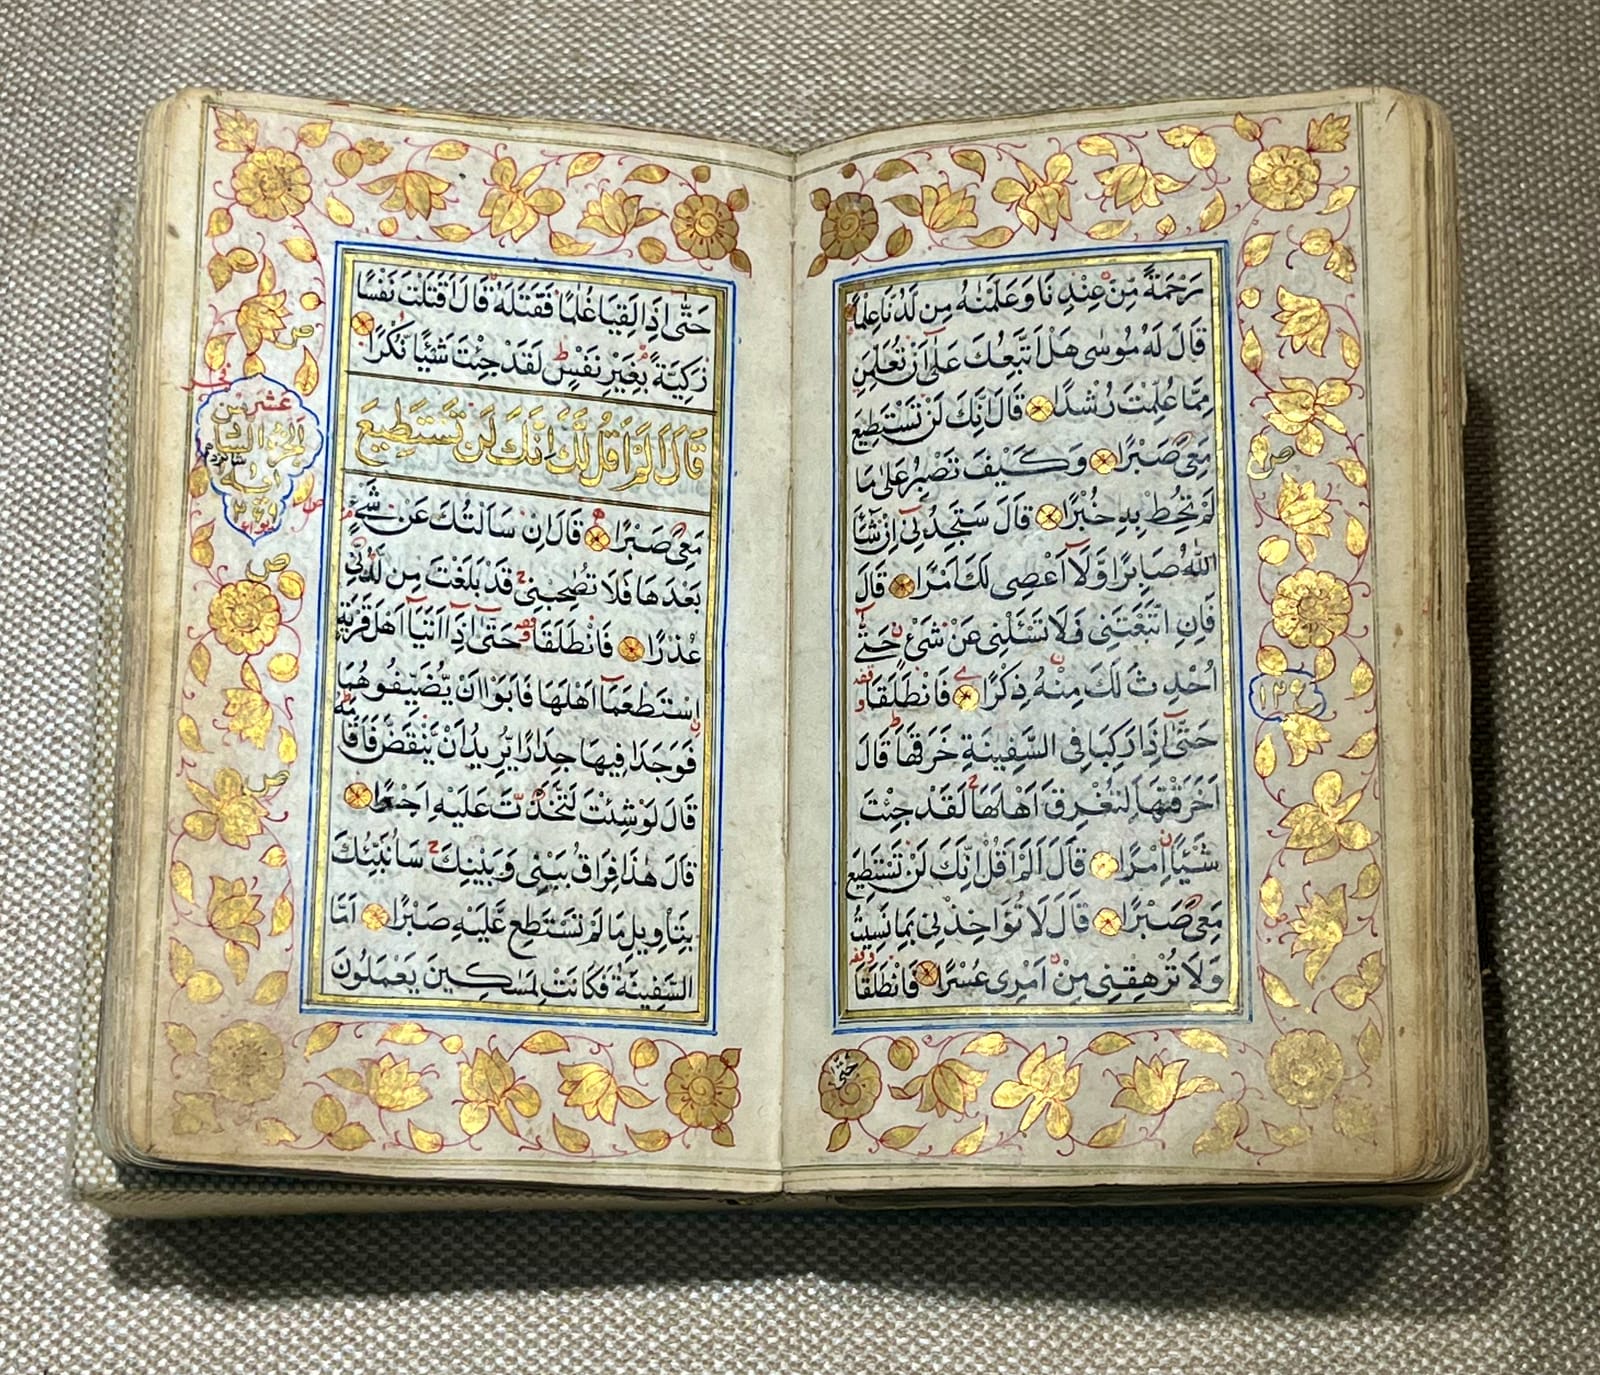 رَحْمَةً مِّنْ عِنْدِنَا وَعَلَّمْنٰهُ مِنْ لَّدُنَّا عِلْمًا
قَالَ لَهُ مُوسٰى هَلْ اَتَّبِعُكَ عَلٰٓى اَنْ تُعَلِّمَنِ
مِمَّا عُلِّمْتَ رُشْدًا قَالَ اِنَّكَ لَنْ تَسْتَطِيعَ
مَعِىَ صَبْرًا وَكَيْفَ تَصْبِرُ عَلٰى مَا
لَمْ تُحِطْ بِهِ خُبْرًا قَالَ سَتَجِدُنِىٓ اِنْ شَآءَ
اللّٰهُ صَابِرًا وَّلَآ اَعْصِى لَكَ اَمْرًا قَالَ
فَاِنِ اتَّبَعْتَنِى فَلَا تَسْـَٔلْنِى عَنْ شَىْءٍ حَتّٰٓى
اُحْدِثَ لَكَ مِنْهُ ذِكْرًا فَانْطَلَقَا
حَتّٰٓى اِذَا رَكِبَا فِى السَّفِينَةِ خَرَقَهَا قَالَ
اَخَرَقْتَهَا لِتُغْرِقَ اَهْلَهَا لَقَدْ جِئْتَ
شَيْـًٔا اِمْرًا قَالَ اَلَمْ اَقُلْ اِنَّكَ لَنْ تَسْتَطِيعَ
مَعِىَ صَبْرًا قَالَ لَا تُؤَاخِذْنِى بِمَا نَسِيتُ
وَلَا تُرْهِقْنِى مِنْ اَمْرِى عُسْرًا فَانْطَلَقَا
حَتّٰى
حَتّٰٓى اِذَا لَقِيَا غُلٰمًا فَقَتَلَهُ قَالَ اَقَتَلْتَ نَفْسًا
زَكِيَّةً بِغَيْرِ نَفْسٍ لَقَدْ جِئْتَ شَيْـًٔا نُكْرًا
قَالَ اَلَمْ اَقُلْ لَّكَ اِنَّكَ لَنْ تَسْتَطِيعَ
مَعِىَ صَبْرًا قَالَ اِنْ سَاَلْتُكَ عَنْ شَىْءٍ
بَعْدَهَا فَلَا تُصٰحِبْنِى قَدْ بَلَغْتَ مِنْ لَّدُنِّى
عُذْرًا فَانْطَلَقَا حَتّٰٓى اِذَآ اَتَيَآ اَهْلَ قَرْيَةٍ
اسْتَطْعَمَآ اَهْلَهَا فَاَبَوْا اَنْ يُّضَيِّفُوهُمَا
فَوَجَدَا فِيهَا جِدَارًا يُّرِيدُ اَنْ يَّنْقَضَّ فَاَقَامَهُ
قَالَ لَوْ شِئْتَ لَتَّخَذْتَ عَلَيْهِ اَجْرًا
قَالَ هٰذَا فِرَاقُ بَيْنِى وَبَيْنِكَ سَاُنَبِّئُكَ
بِتَأْوِيلِ مَا لَمْ تَسْتَطِعْ عَّلَيْهِ صَبْرًا اَمَّا
السَّفِينَةُ فَكَانَتْ لِمَسٰكِينَ يَعْمَلُونَ